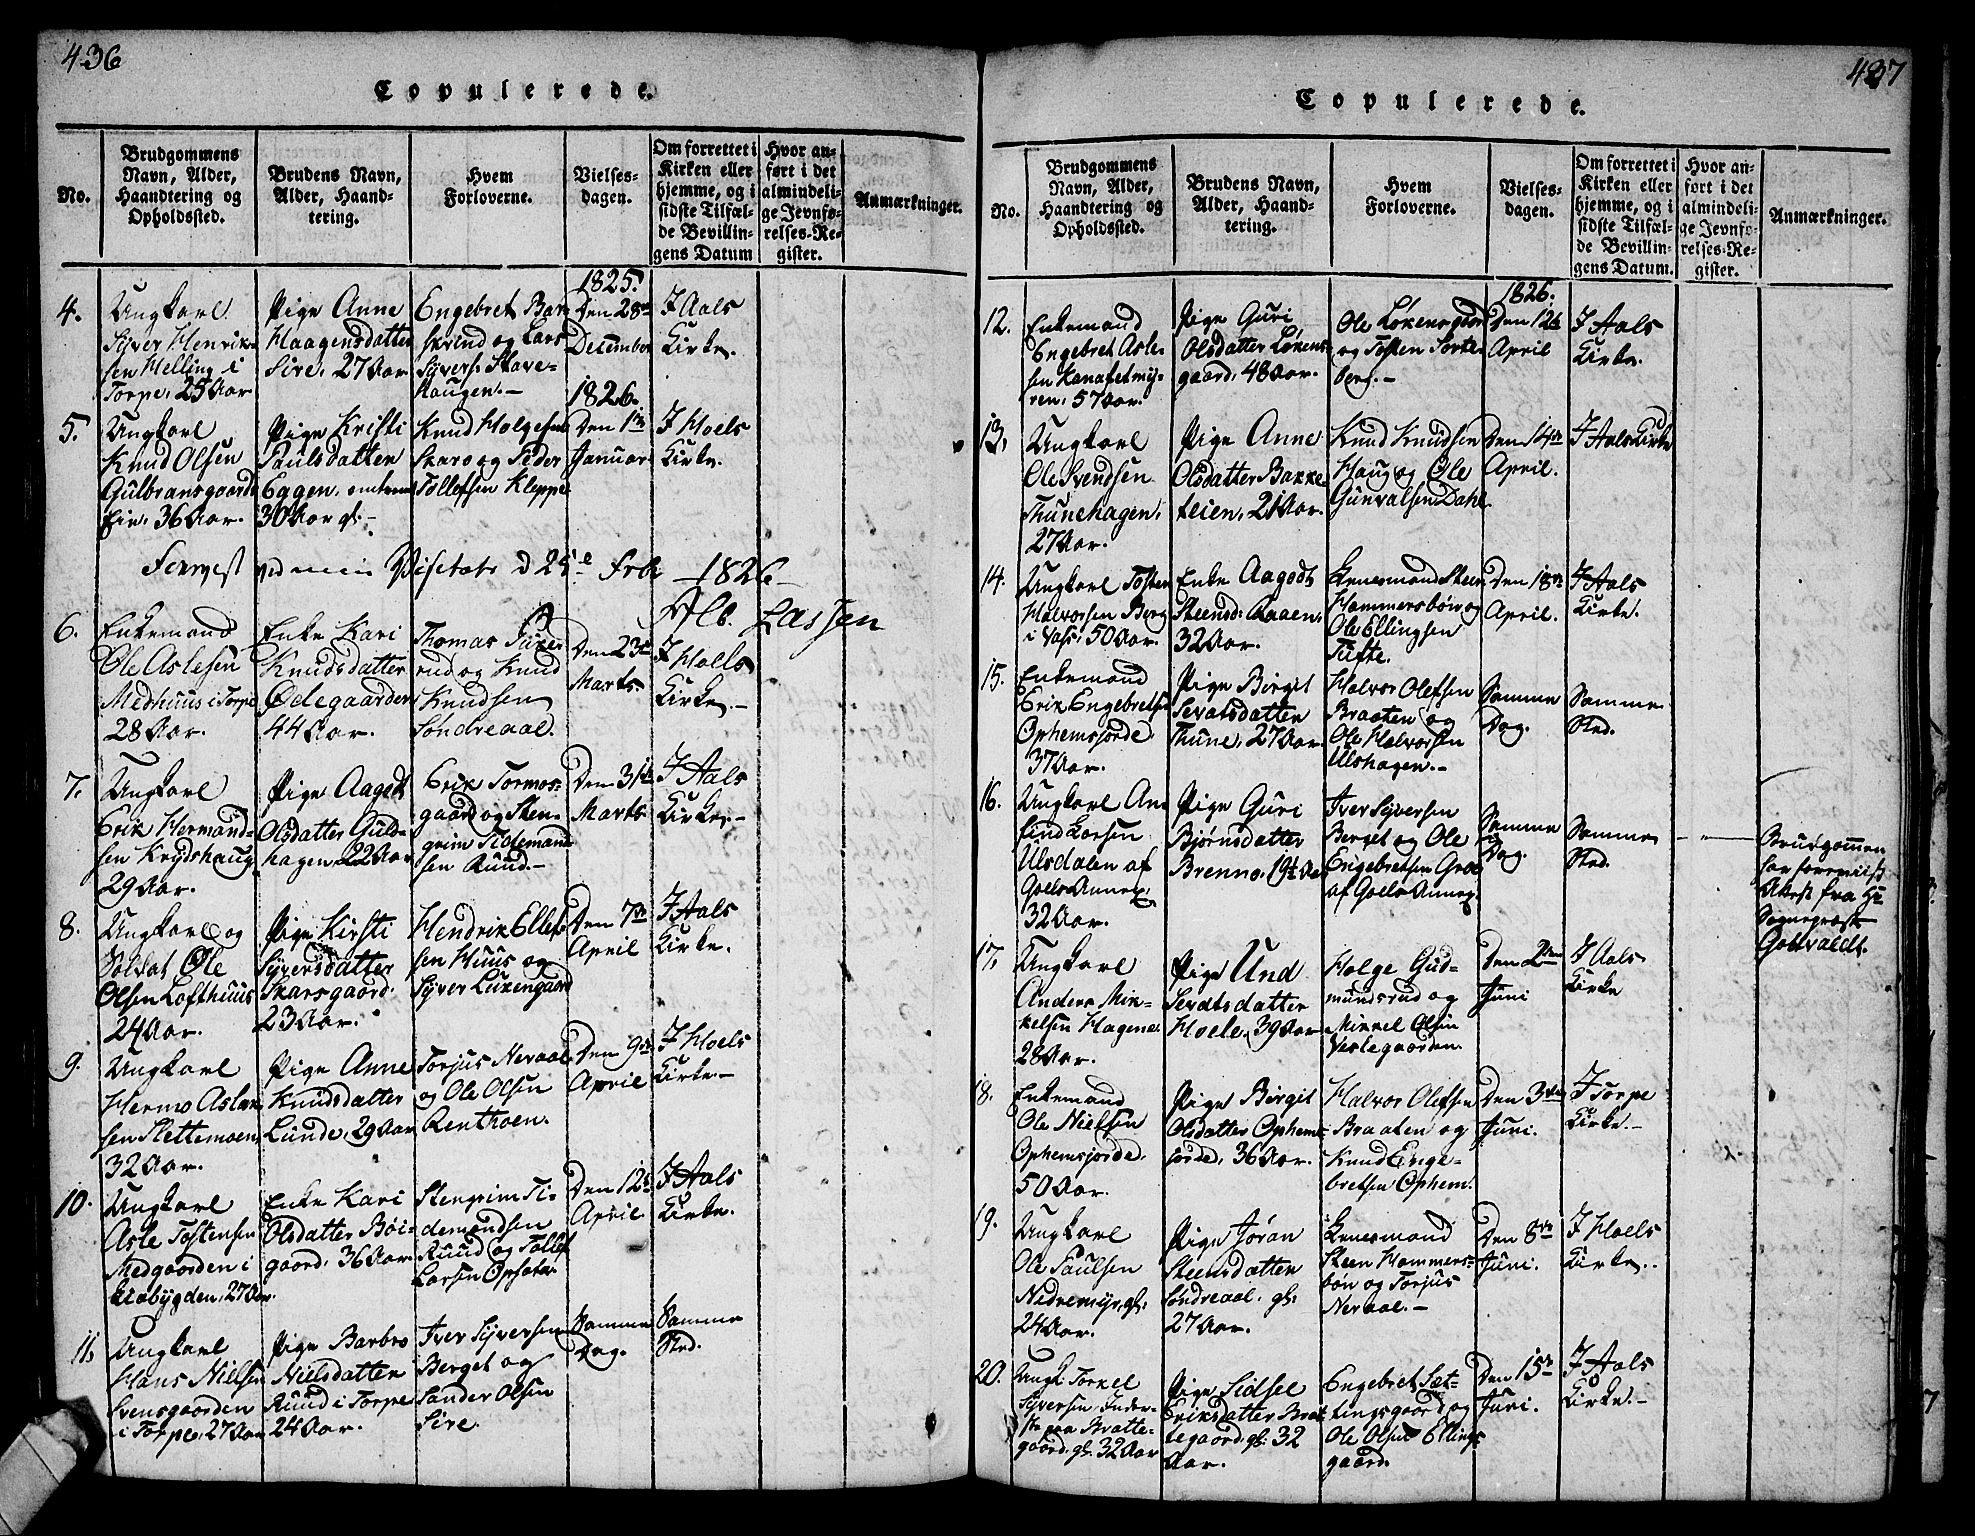 436
Copulerede.
No.
Brudgommens
Navn, Alder,
Haandtering og
Opholdssted.
Brudens Navn,
Alder, Haand-
tering.
Hvem
Forloverne.
Vielses-
dagen.
Om forrettet i
Kirken eller
hjemme, og i
sidste Tilfæl-
de Bevillin-
gens Datum
Hvor an-
ført i det
almindeli-
ge Jevnfø-
relses-Re-
gister.
Anmærkninger.
4.
Ungkarl
Syver Henrik-
sen Helling i
Torpe, 25 Aar
Pige Anne
Haagensdatter
Sire, 27 Aar
Engebret Bar-
skrind og Lars
Syvers: Stave-
haugen.-
1825.
Den 28de
December
I Aals
Kirke.
5.
Ungkarl
Knud Olsen
Gulbransgaards
Eie, 36 Aar.
Pige Kristi
Paulsdatter
Eggen,
30 Aar gl.-
Knud Holgesen
Skaro og Peder
Tollefsen Kleppe
1826.
Den 1ste
Januar
I Hoels
Kirke.
ved min Visitats d 25e Febr 1826
Alb. Lassen
6.
Enkemand
Ole Aslesen
Medhuus i Torpe
28 Aar.
Enke Kari
Knudsdatter
Ødegaarden
44 Aar.
Thomas
rud og Knud
Knudsen
Søndreaal.
Den 23de
Marts.
I Hoels
Kirke.-
7.
Ungkarl
Erik Hermand-
sen Krydshaug
29 Aar.
Pige Aagodt
Olsdatter Guld-
hagen 22 Aar
Erik Tormos-
gaard og Sten-
grim Tidemand
sen Ruud.-
Den 31te
Marts
I Aals
Kirke.-
8.
Ungkarl og
Soldat Ole
Olsen Lofthuus
24 Aar.
Pige Kirsti
Syversdatter
Skarsgaard.
23 Aar.
Hendrik Ellef-
sen Huus og
Syver Luxengaard
Den 7de
April
I Aals
Kirke.
9.
Ungkarl
Hermo Aslak-
sen Slettemoen,
32 Aar.
Pige Anne
Knudsdatter
Lunde, 29 Aar
Torjus Neraal
og Ole Olsen
Renthoen.
Den 9de
April
I Hoels
Kirke.-
10.
Ungkarl
Asle Tostensen
Medgaarden i
Liabygden, 27 Aar.
Enke Kari
Olsdatter Bøi-
gaord, 36 Aar.
Stengrim Ti-
demandsen
Ruud og Tollef
Larsen Opsata.
Den 12te
April
I Aals
Kirke.
11.
Ungkarl
Hans Nielsen
Svensgaarden
i Torpe, 27 Aar
Pige Barbro
Nielsdatter
Ruud i Torpe
24 Aar.
Iver Syversen
Berget og
Sander Olsen
Sire.
Samme
Dag.
Samme
Sted.
437
Copulerede.
No.
Brudgommens
Navn, Alder,
Haandtering og
Opholdssted.
Brudens Navn,
Alder, Haand-
tering.
Hvem
Forloverne.
Vielses-
dagen.
Om forrettet i
Kirken eller
hjemme, og i
sidste Tilfæl-
de Bevillin-
gens Datum.
Hvor an-
ført i det
almindeli-
ge Jevnfø-
relses-Re-
gister.
Anmærkninger.
12.
Enkemand
Engebret Asle-
sen Kanafetmy-
ren, 57 Aar.
Pige Guri
Olsdatter Løkens-
gaard, 48 Aar.
Ole Løkensgaard
og Tosten Sorte-
berg.-
1826.
Den 12te
April
I Aals
Kirke.
13.
Ungkarl
Ole Svendsen
Thunehagen,
27 Aar.
Pige Anne
Olsdatter Bakke-
teien, 21 Aar.
Knud Knudsen
Haug og Ole
Gunvalsen Dahl
Den 14de
April.
I Aals Kirke
14.
Ungkarl Tosten
Halvorsen Berg
i Vass, 50 Aar.
Enke Aagodt
Steensd: Aaaen,
32 Aar.
Lensmand Steen
Hammersbøn og
Ole Ellingsen
Tufte.
Den 18de
April.
I Aals
Kirke.
15.
Enkemand
Erik Engebretsen
Ophemsjorde
37 Aar.
Pige Birgit
Sevatsdatter
Thune, 27 Aar.
Halvor Olefsen
Braaten og
Ole Halvorsen
Ulshagen.-
Samme
Dag.
Samme
Sted.
16.
Ungkarl Am-
find Larsen
Ulsdalen af
Goels Annex,
32 Aar.
Pige Guri
Bjørnsdatter
Brenno, 19½ Aar
Iver Syversen
Berget og Ole
Engebretsen Groe
af Goels Annex.
Samme
Dag.
Samme
Sted.
Brudgommen
har foreviist
Attest fra Hr
Sogneprest
Gotwaldt.
17.
Ungkarl
Anders Mik-
kelsen Hagene
28 Aar.
Pige Und
Sevatsdatter
Hoele, 39 Aar
Holge Gud-
mundsrud og
Mikkel Olsen
Vestegaarden.
Den 2den
Juni
I Aals
Kirke
18.
Enkemand
Ole Nielsen
Ophemsjorde,
50 Aar.
Pige Birgit
Olsdatter Ophems-
jorde, 36 Aar.
Halvor Olefsen
Braaten og
Knud Enge-
bretsen Ophem.
Den 3die
Juni.
I Torpe
Kirke.-
19.
Ungkarl
Ole Paulsen
Nedremyr, gl:
24 Aar.
Pige Jøran
Steensdatter
Søndreaal, gl:
27 Aar.
Lensmand
Steen Hammers-
bøn og Torjus
Neraal.-
Den 8de
Juni.
I Hoels
Kirke.
20.
Ungk: Torkel
Syversen Inder-
ste paa Bratte-
gaard, gl: 32 Aar
Pige Sidsel
Eriksdatter Brat-
tegaard, gl: 32
Aar.
Engebret Sæt-
tingsgaard og
Ole Olsen Ellings-
gaard.
Den 15de
Juni.
I Aals
Kirke.-